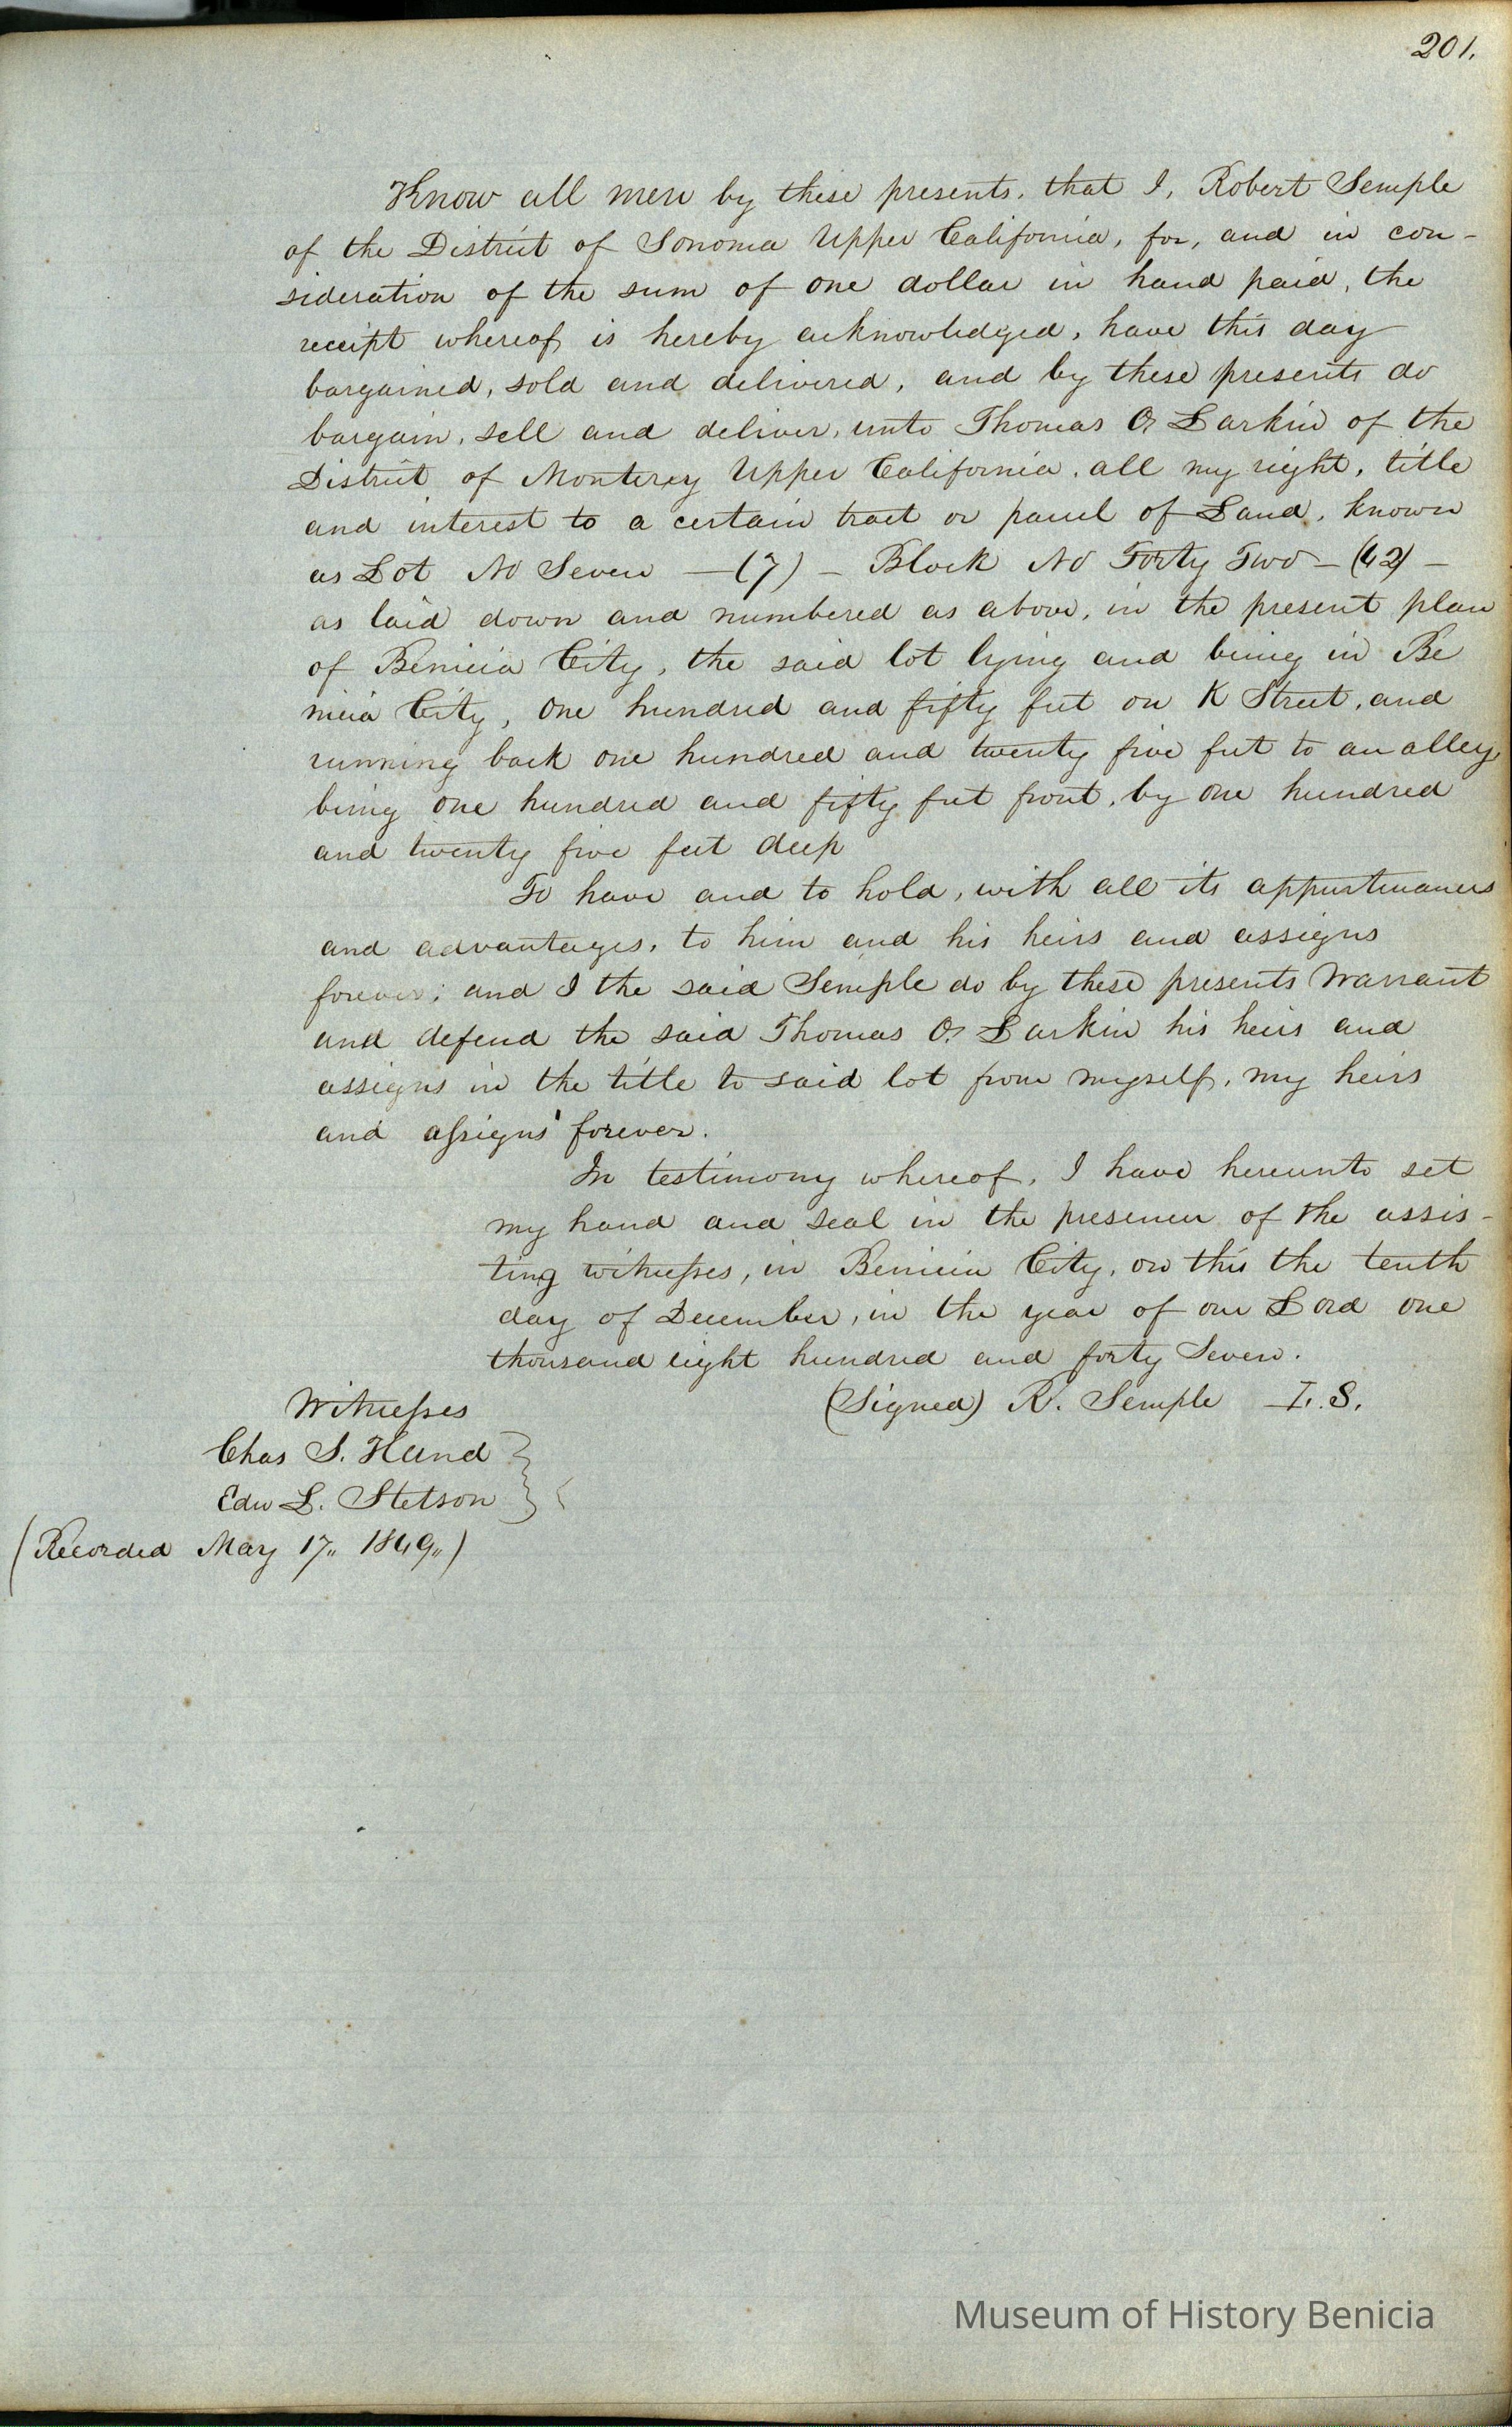 201.
Know all men by these presents, that I, Robert Semple
of the District of Sonoma Upper California, for, and in con-
sideration of the sum of one dollar in hand paid, the
receipt whereof is hereby acknowledged, have this day
bargained, sold and delivered, and by these presents do
bargain, sell and deliver, unto Thomas O. Larkin of the
District of Monterey Upper California, all my right, title
and interest to a certain tract or parcel of Land, known
as Lot No Seven — (7) — Block No Forty Two — (42) —
as laid down and numbered as above, in the present plan
of Benicia City, the said lot lying and being in Be
nicia City, One hundred and fifty feet on K Street, and
running back one hundred and twenty five feet to an alley,
being one hundred and fifty feet front, by one hundred
and twenty five feet deep
To have and to hold, with all its appurtenances
and advantages, to him and his heirs and assigns
forever; and I the said Semple do by these presents Warrant
and defend the said Thomas O. Larkin his heirs and
assigns in the title to said lot from myself, my heirs
and assigns forever.
In testimony whereof, I have hereunto set
my hand and seal in the presence of the assis-
ting witnesses, in Benicia City, on this the tenth
day of December, in the year of our Lord one
thousand eight hundred and forty Seven.
Witnesses (Signed) R. Semple L.S.
Chas S. Hand
Edw L. Stetson
(Recorded May 17,, 1849,,)
Museum of History Benicia